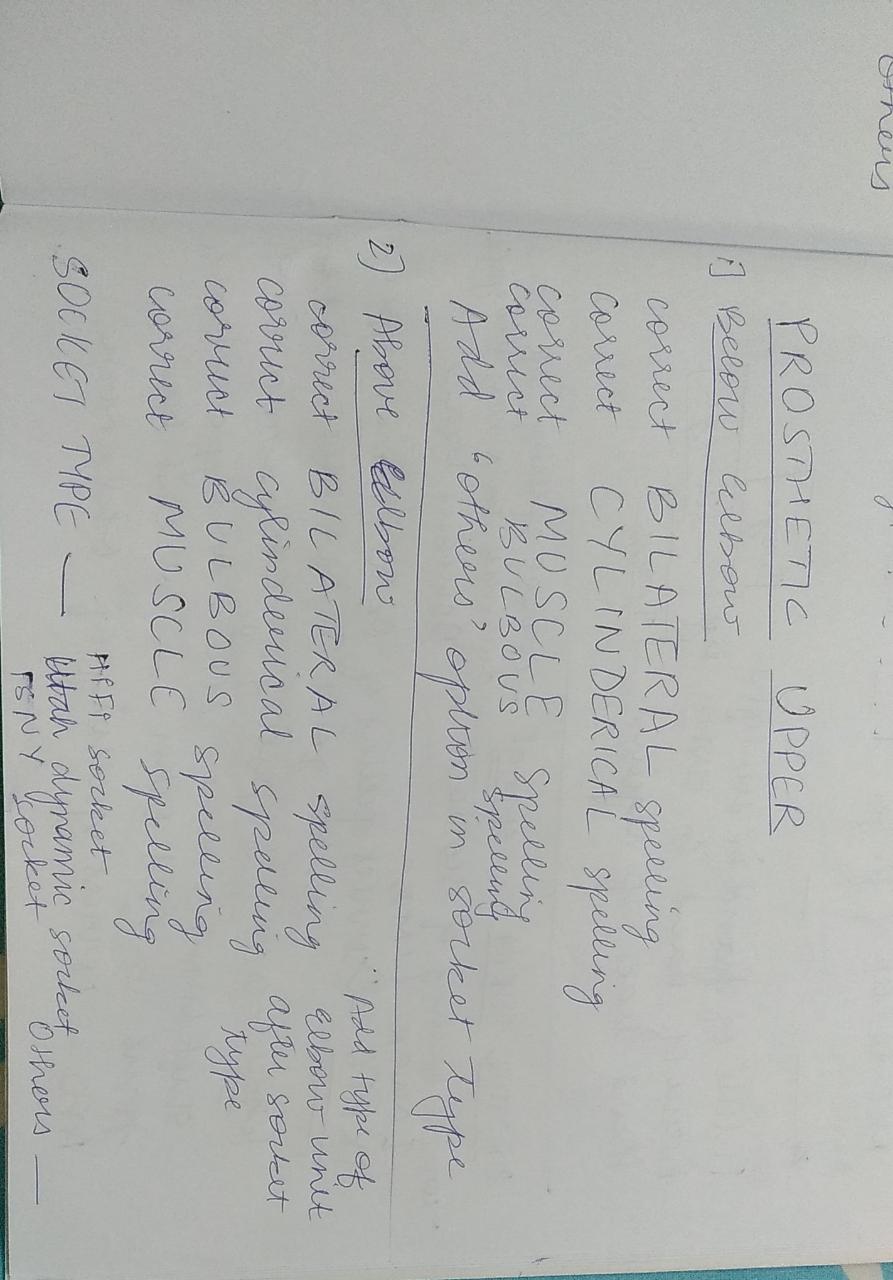 others
PROSTHETIC UPPER
1] Below Elbow
correct BILATERAL spelling
correct CYLINDERICAL spelling
correct MUSCLE spelling
correct BULBOUS spelling
Add 'others' option in socket type
2] Above Elbow
correct BILATERAL spelling
correct cylinderical spelling
correct BULBOUS spelling
correct MUSCLE spelling
Add type of
Elbow unit
after socket
type
SOCKET TYPE — HiFi socket
Utah dynamic socket
ISNY socket
Others —